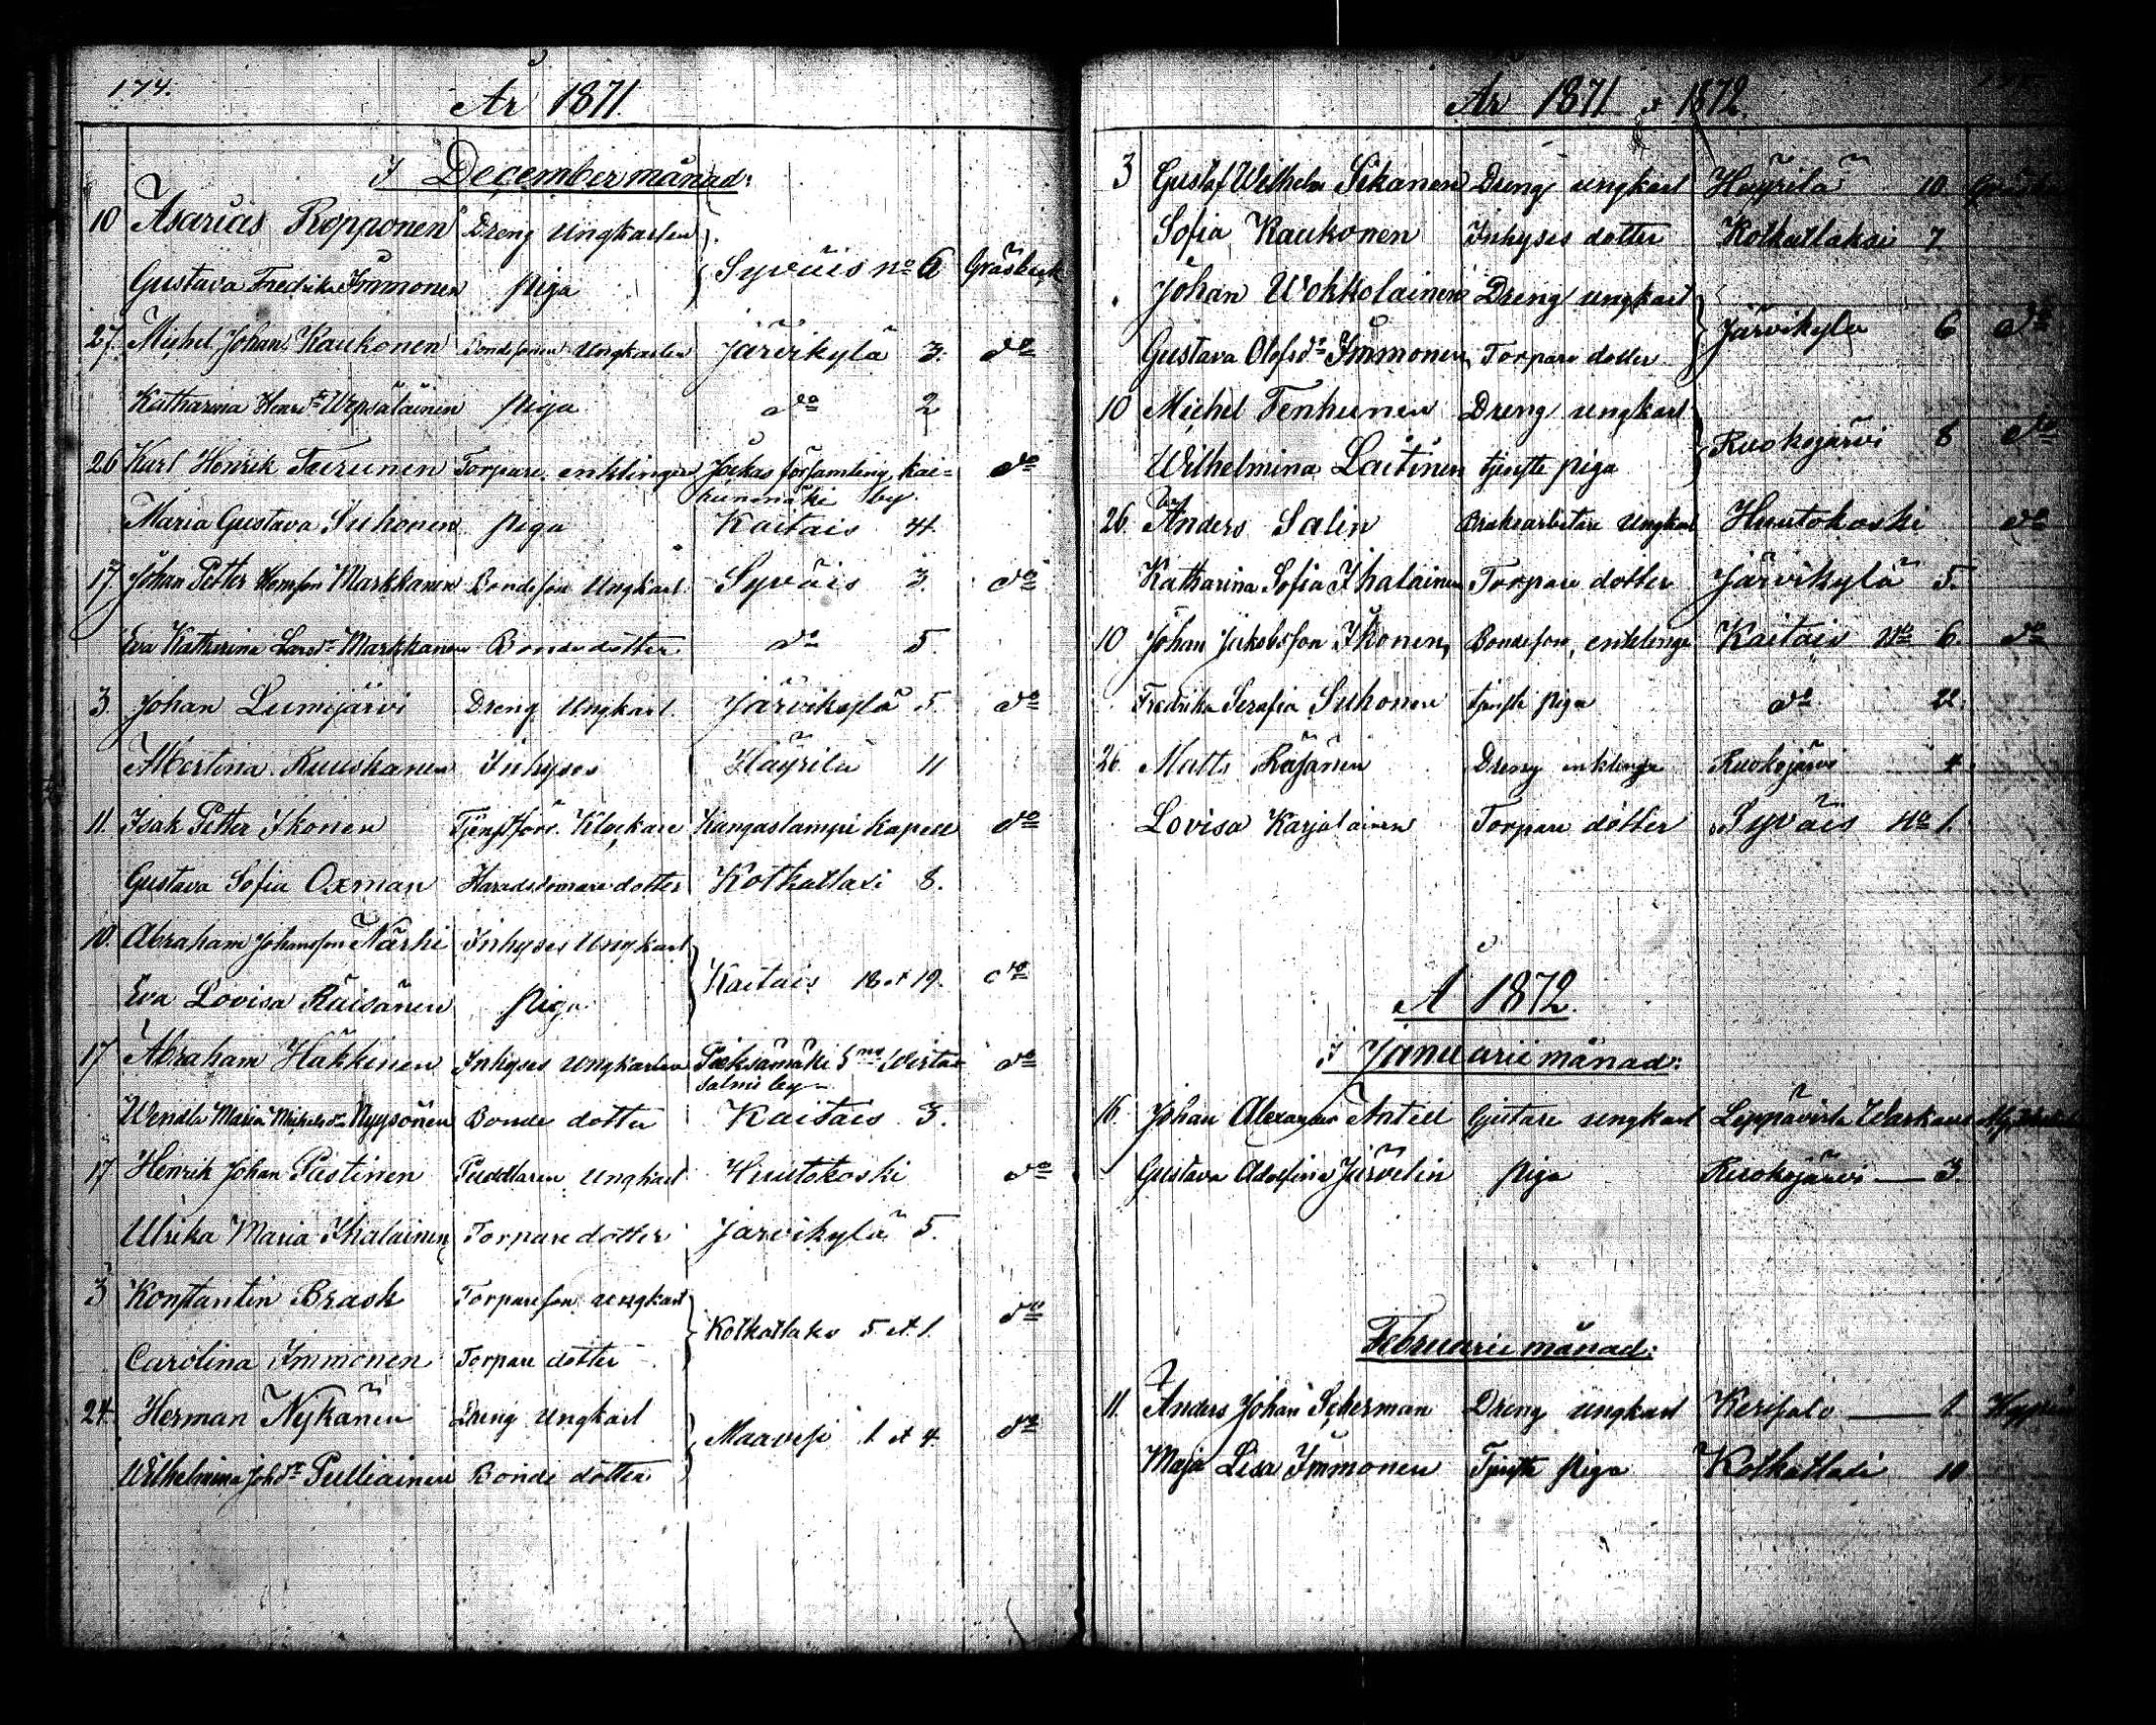 174.
År 1871.
I December månad:
10 Asarias Ropponen Dreng Ungkarlen
Syväis no 6 Gräsbeck
Gustava Fredrika Immonen Piga
27. Michel Johan Kaukonen Bondesonen Ungkarlen Järvikylä 3. do
Katharina Henrdr Wepsäläinen Piga do 2
26 Karl Henrik Turunen Torpare enklingen Jockas församling, kai-
kunmäki by. do
Maria Gustava Suhonen Piga Kaitais 4.
17 Johan Petter Hemson Markkanen Bondeson Ungkarl Syväis 3. do
Eva Katharina Larsdr Markkanen Bonde dotter do 5.
3. Johan Lumijärvi Dreng Ungkarl. Järvikylä 5. do
Albertina Ruuskanen Inhyses Häyrilä 11
11. Isak Petter Ikonen Tjenstförr. Klockare Kangaslampi Kapell do
Gustava Sofia Oxman Häradsdomare dotter Kotkatlaxi 8.
10. Abraham Johansson Närhi Inhyses Ungkarl
Kaitais 18 et 19. do
Eva Lovisa Räisänen Piga
17 Abraham Häkkinen Inhyses Ungkarlen Pieksämäki Sn Wirta-
salmi by do
Wendla Maria Michelsdr Nyysönen Bonde dotter Kaitais 3.
17 Henrik Johan Pastinen Puddlaren Ungkarl Huutokoski do
Ulrika Maria Ihalainen Torpare dotter Järvikylä 5.
3 Konstantin Brask Torpareson ungkarl
Kotkatlaks 5 et 1. do
Carolina Immonen Torpare dotter
24. Herman Nykänen Dreng Ungkarl
Maavesi 1 et 4. do
Wilhelmina Johdr Pulliainen Bonde dotter
År 1871 et 1872.
3 Gustaf Wilhelm Sikanen Dreng ungkarl Häyrilä 10.
Sofia Kaukonen Inhyses dotter Kotkatlaksi 7.
Johan Wokkolainen Dreng ungkarl
Järvikylä 6 do
Gustava Olofsdr Immonen Torpare dotter
10 Michel Tenhunen Dreng ungkarl
Ruokojärvi 8 do
Wilhelmina Laitinen tjenste piga
26. Anders Salin Bruksarbetare Ungkarl Huutokoski do
Katharina Sofia Ihalainen Torpare dotter Järvikylä 5.
10 Johan Jakobsson Ikonen, Bondeson, enklinge Kaitais No 6. do
Fredrika Serafia Suhonen tjenste piga do 22.
26. Matts Räsänen Dreng enklinge Ruokojärvi 4
Lovisa Karjalainen Torpare dotter Syväis No 1.
År 1872.
I Januarii månad:
16. Johan Alexander Antell Gjutare ungkarl Leppävirta Warkaus
Gustava Adolfina Järvelin Piga Ruokojärvi — 3.
Februarii månad:
11. Anders Johan Scherman Dreng ungkarl Kerisalo — 1.
Maja Lisa Immonen Tjenste piga Kotkatlaxi 10